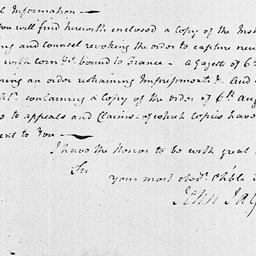 l Information —
you will find herewith enclosed a Copy of the Inst
ng and counsel revoking the order to capture neu
with corn &c. bound to France — A Gazett of 6th
ning an order restraining Impressments & And
containing a Copy of the order of 6th Aug
to appeals and Claims — of which copies have
ent to You —
I have the Honor to be with great
Sir
your most Obedt. & hble
John Jay